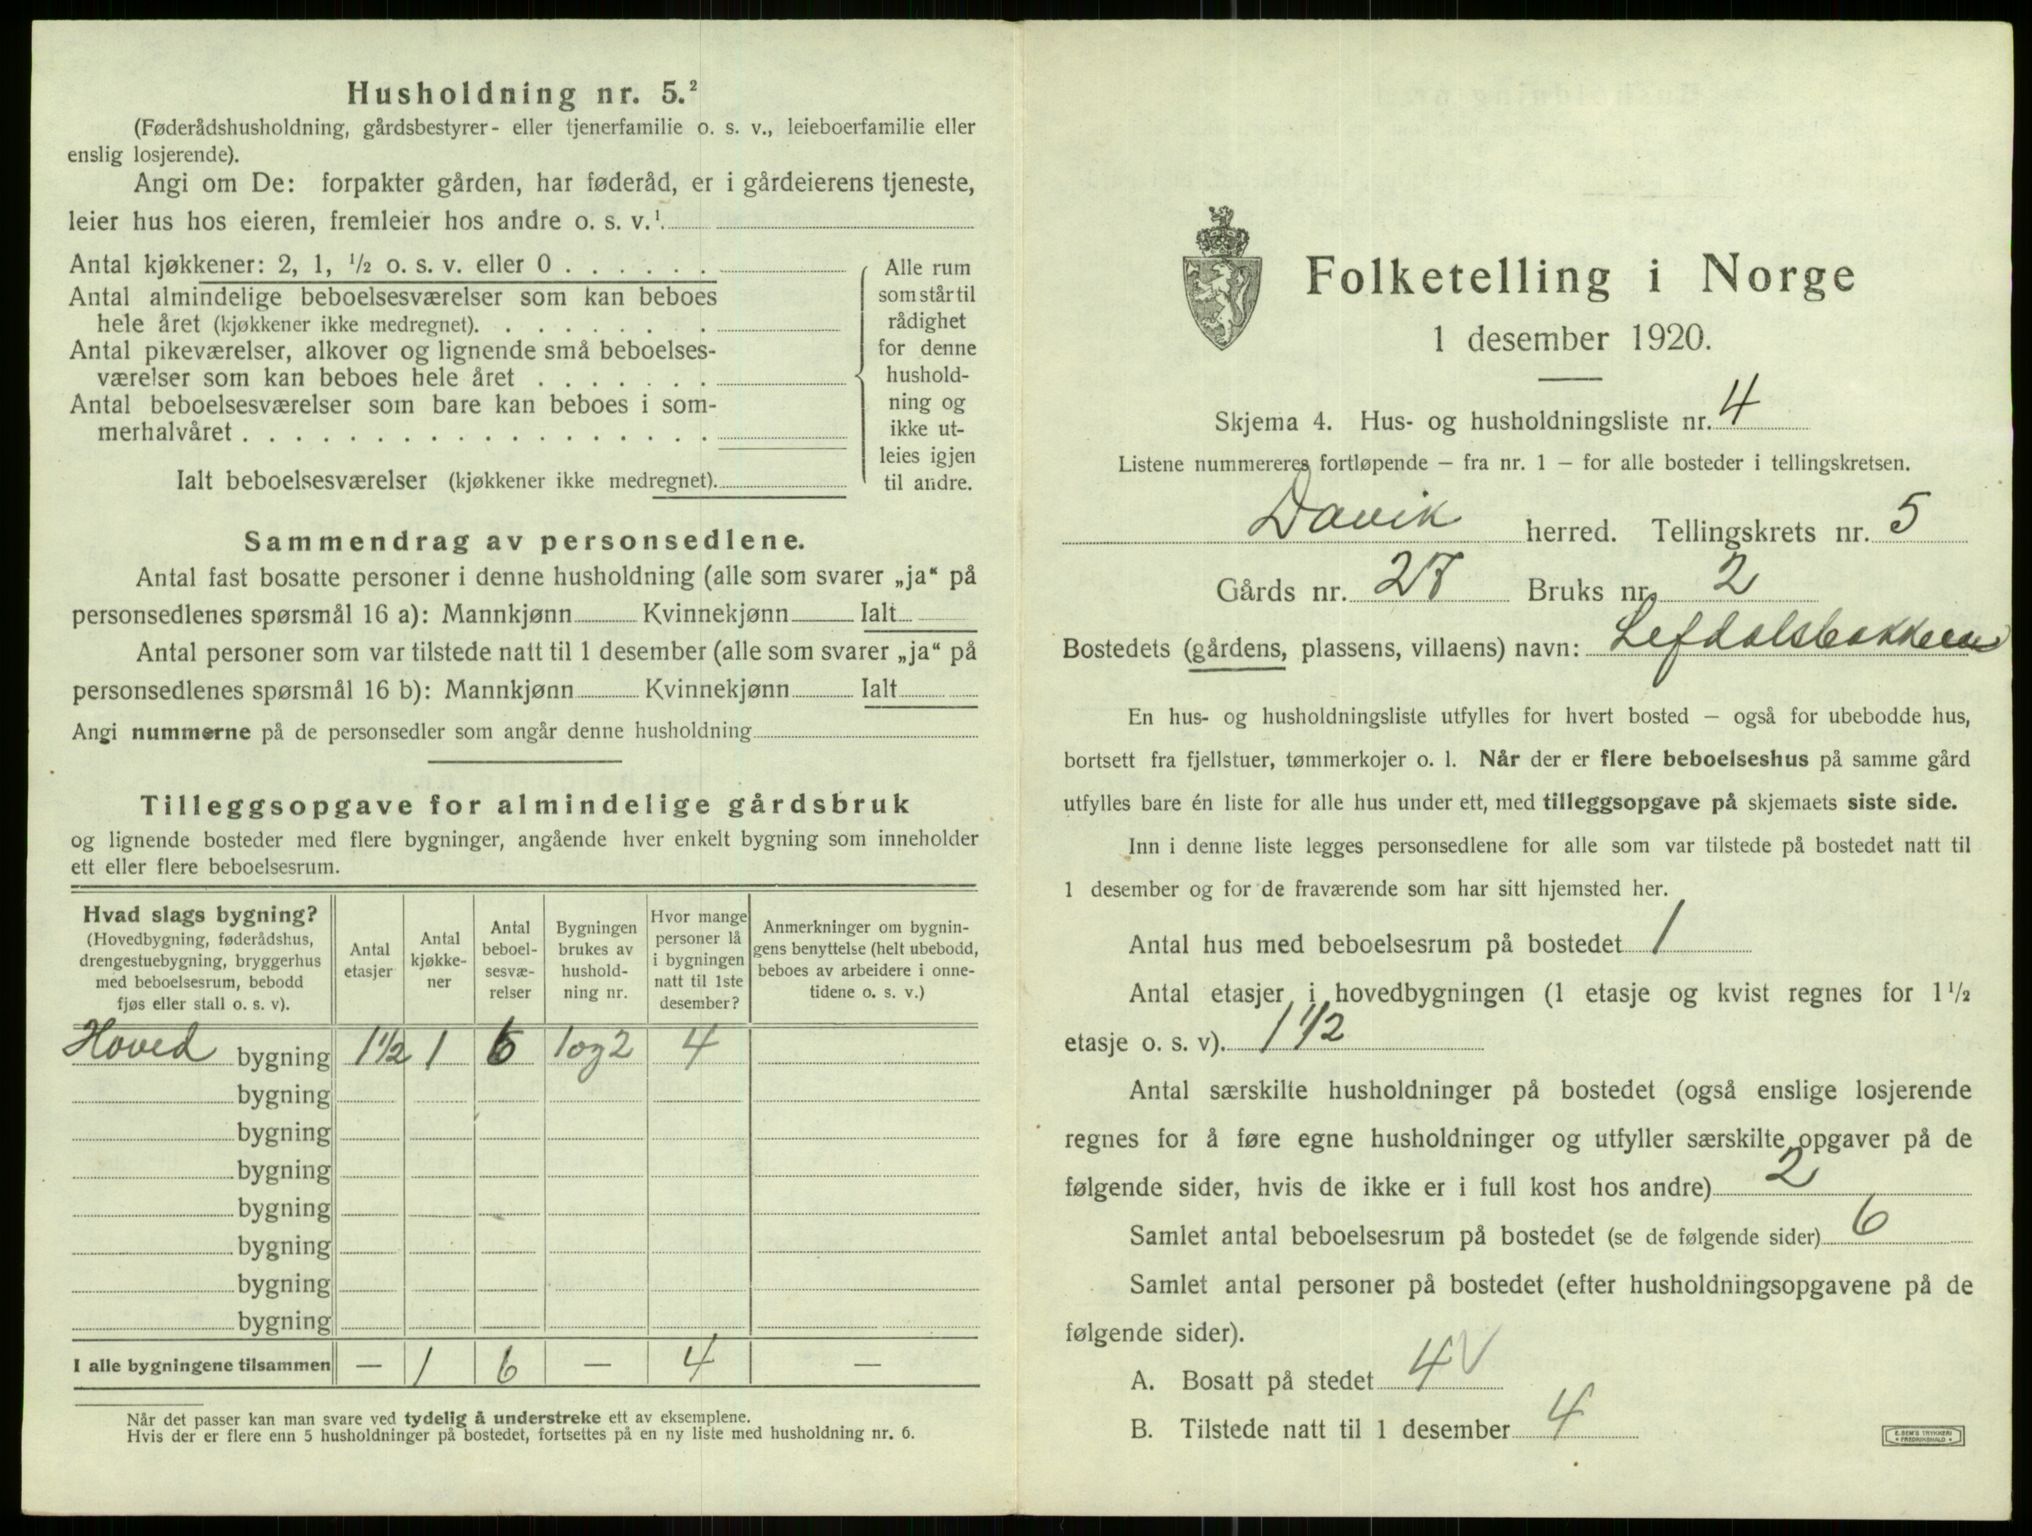 Husholdning nr. 5.²
(Føderådshusholdning, gårdsbestyrer- eller tjenerfamilie o. s. v., leieboerfamilie eller
enslig losjerende).
Angi om De: forpakter gården, har føderåd, er i gårdeierens tjeneste,
leier hus hos eieren, fremleier hos andre o. s. v.¹
Antal kjøkkener: 2, 1, ½ o. s. v. eller 0 . . . . . .
Antal almindelige beboelsesværelser som kan beboes
hele året (kjøkkener ikke medregnet). . . . . . . . .
Antal pikeværelser, alkover og lignende små beboelses-
værelser som kan beboes hele året . . . . . . .
Antal beboelsesværelser som bare kan beboes i som-
merhalvåret . . . . . . . . . . . . . . . . . .
Ialt beboelsesværelser (kjøkkener ikke medregnet).
Alle rum
som står til
rådighet
for denne
hushold-
ning og
ikke ut-
leies igjen
til andre.
Sammendrag av personsedlene.
Antal fast bosatte personer i denne husholdning (alle som svarer „ja“ på
personsedlenes spørsmål 16 a): Mannkjønn Kvinnekjønn Ialt
Antal personer som var tilstede natt til 1 desember (alle som svarer „ja“ på
personsedlenes spørsmål 16 b): Mannkjønn Kvinnekjønn Ialt
Angi nummerne på de personsedler som angår denne husholdning
Tilleggsopgave for almindelige gårdsbruk
og lignende bosteder med flere bygninger, angående hver enkelt bygning som inneholder
ett eller flere beboelsesrum.
Hvad slags bygning?
(Hovedbygning, føderådshus,
drengestuebygning, bryggerhus
med beboelsesrum, bebodd
fjøs eller stall o. s. v).
Antal
etasjer
Antal
kjøkke-
ner
Antal
beboel-
sesvæ-
relser
Bygningen
brukes av
hushold-
ning nr.
Hvor mange
personer lå
i bygningen
natt til 1ste
desember?
Anmerkninger om bygnin-
gens benyttelse (helt ubebodd,
beboes av arbeidere i onne-
tidene o. s. v.)
Hoved bygning 1½ 1 6 1 og 2 4
bygning
bygning
bygning
bygning
bygning
bygning
bygning
I alle bygningene tilsammen — 1 6 — 4 —
Når det passer kan man svare ved tydelig å understreke ett av eksemplene.
Hvis der er flere enn 5 husholdninger på bostedet, fortsettes på en ny liste med husholdning nr. 6.
Folketelling i Norge
1 desember 1920.
Skjema 4. Hus- og husholdningsliste nr. 4
Listene nummereres fortløpende – fra nr. 1 – for alle bosteder i tellingskretsen.
Davik herred. Tellingskrets nr. 5
Gårds nr. 27 Bruks nr. 2
Bostedets (gårdens, plassens, villaens) navn: Lefdalsbakkene
En hus- og husholdningsliste utfylles for hvert bosted – også for ubebodde hus,
bortsett fra fjellstuer, tømmerkojer o. l. Når der er flere beboelseshus på samme gård
utfylles bare én liste for alle hus under ett, med tilleggsopgave på skjemaets siste side.
Inn i denne liste legges personsedlene for alle som var tilstede på bostedet natt til
1 desember og for de fraværende som har sitt hjemsted her.
Antal hus med beboelsesrum på bostedet 1
Antal etasjer i hovedbygningen (1 etasje og kvist regnes for 1½
etasje o. s. v). 1½
Antal særskilte husholdninger på bostedet (også enslige losjerende
regnes for å føre egne husholdninger og utfyller særskilte opgaver på de
følgende sider, hvis de ikke er i full kost hos andre) 2
Samlet antal beboelsesrum på bostedet (se de følgende sider) 6
Samlet antal personer på bostedet (efter husholdningsopgavene på de
følgende sider).
A. Bosatt på stedet 4 V
B. Tilstede natt til 1 desember 4
E. SEM'S TRYKKERI
FREDRIKSHALD